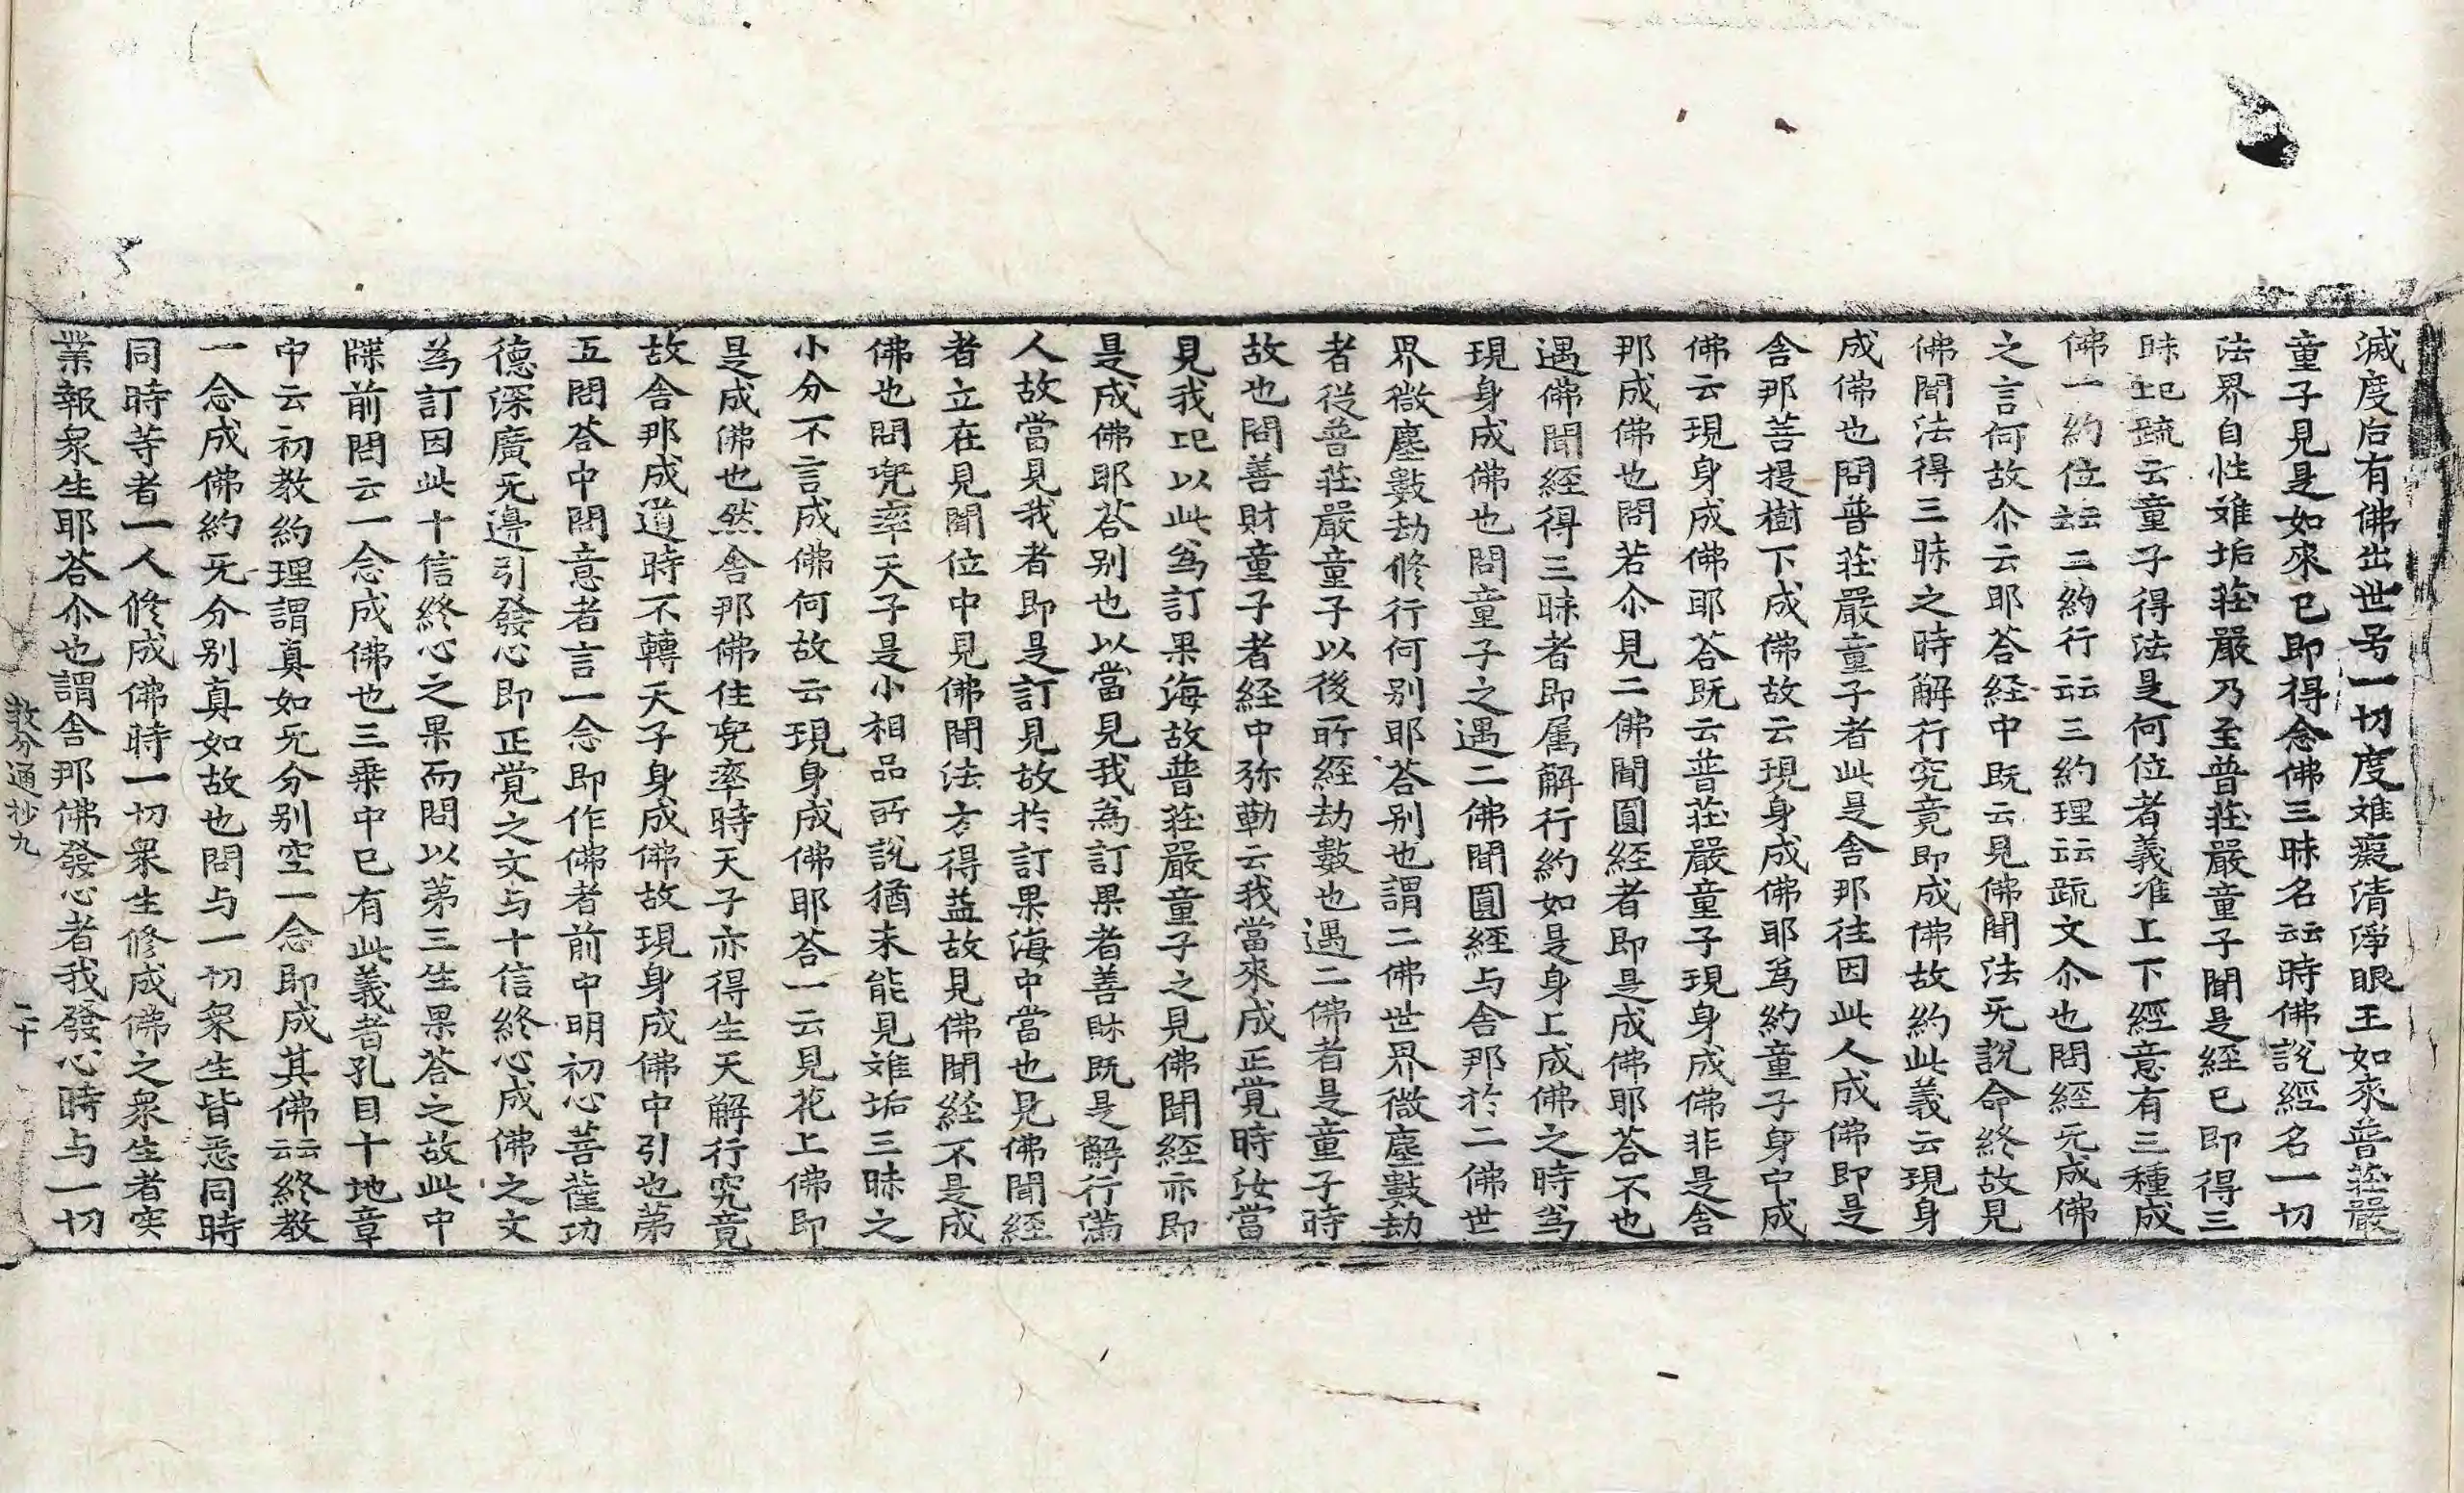 滅度后有佛出世号一切度难癡清淨眼王如來普莊嚴
童子見是如來已即得念佛三昧名云云時佛說經名一切
法界自性难垢莊嚴乃至普莊嚴童子聞是経已即得三
昧記䟽云童子得法是何位者義准上下經意有三種成
佛一約位云云二約行云云三約理云云䟽文尒也問經无成佛
之言何故尒云耶荅経中既云見佛聞法无說命終故見
佛聞法得三昧之時解行究竟即成佛故約此義云現身
成佛也問普莊嚴童子者此是舎那往因此人成佛即是
舎那菩提樹下成佛故云現身成佛耶為約童子身中成
佛云現身成佛耶荅既云普莊嚴童子現身成佛非是舎
那成佛也問若尒見二佛聞圓経者即是成佛耶荅不也
遇佛聞經得三昧者即属解行約如是身上成佛之時為
現身成佛也問童子之遇二佛聞圓經与舎那於二佛世
界微塵數劫修行何别耶荅别也謂二佛世界微塵數劫
者從普莊嚴童子以後所経劫數也遇二佛者是童子時
故也問善財童子者経中弥勒云我當來成正覚時汝當
見我记以此為訂果海故普莊嚴童子之見佛聞經亦即
是成佛耶荅别也以當見我為訂果者善財既是解行滿
人故當見我者即是訂見故於訂果海中當也見佛聞經
者立在見聞位中見佛聞法方得益故見佛聞経不是成
佛也問兜率天子是小相品所說猶未能見难垢三昧之
小分不言成佛何故云現身成佛耶荅一云見花上佛即
是成佛也然舎那佛住兜率時天子亦得生天解行究竟
故舎那成道時不轉天子身成佛故現身成佛中引也第
五問荅中問意者言一念即作佛者前中明初心菩薩功
德深廣无邊引發心即正覚之文与十信終心成佛之文
為訂因此十信終心之果而問以第三生果荅之故此中
牒前問云一念成佛也三乗中已有此義者孔目十地章
中云初教約理謂真如无分别空一念即成其佛云云終教
一念成佛約无分别真如故也問与一切衆生皆悉同時
同時等者一人修成佛時一切衆生修成佛之衆生者実
業報衆生耶荅尒也謂舎那佛發心者我發心時与一切
教分通抄九　二十